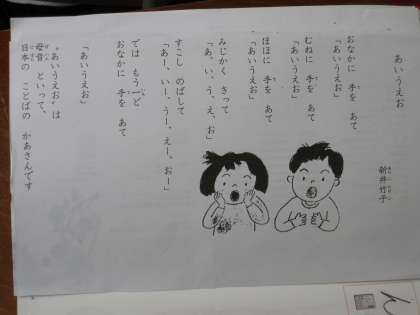 あいうえお
新井竹子
おなかに 手を あて
「あいうえお」
むねに 手を あて
「あいうえお」
ほほに 手を あて
「あいうえお」
みじかく きって
「あ、い、う、え、お」
すこし のばして
「あー、いー、うー、えー、おー」
では もう一ど
おなかに 手を あて
「あいうえお」
"あいうえお"は
母音 といって、
日本の ことばの かあさんです
ん